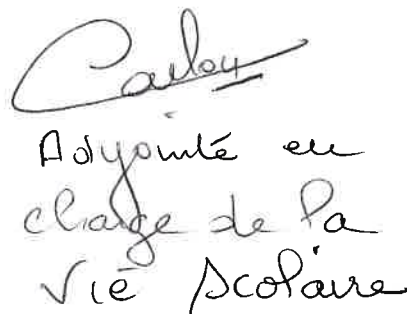 Adjointe en
charge de la
vie scolaire